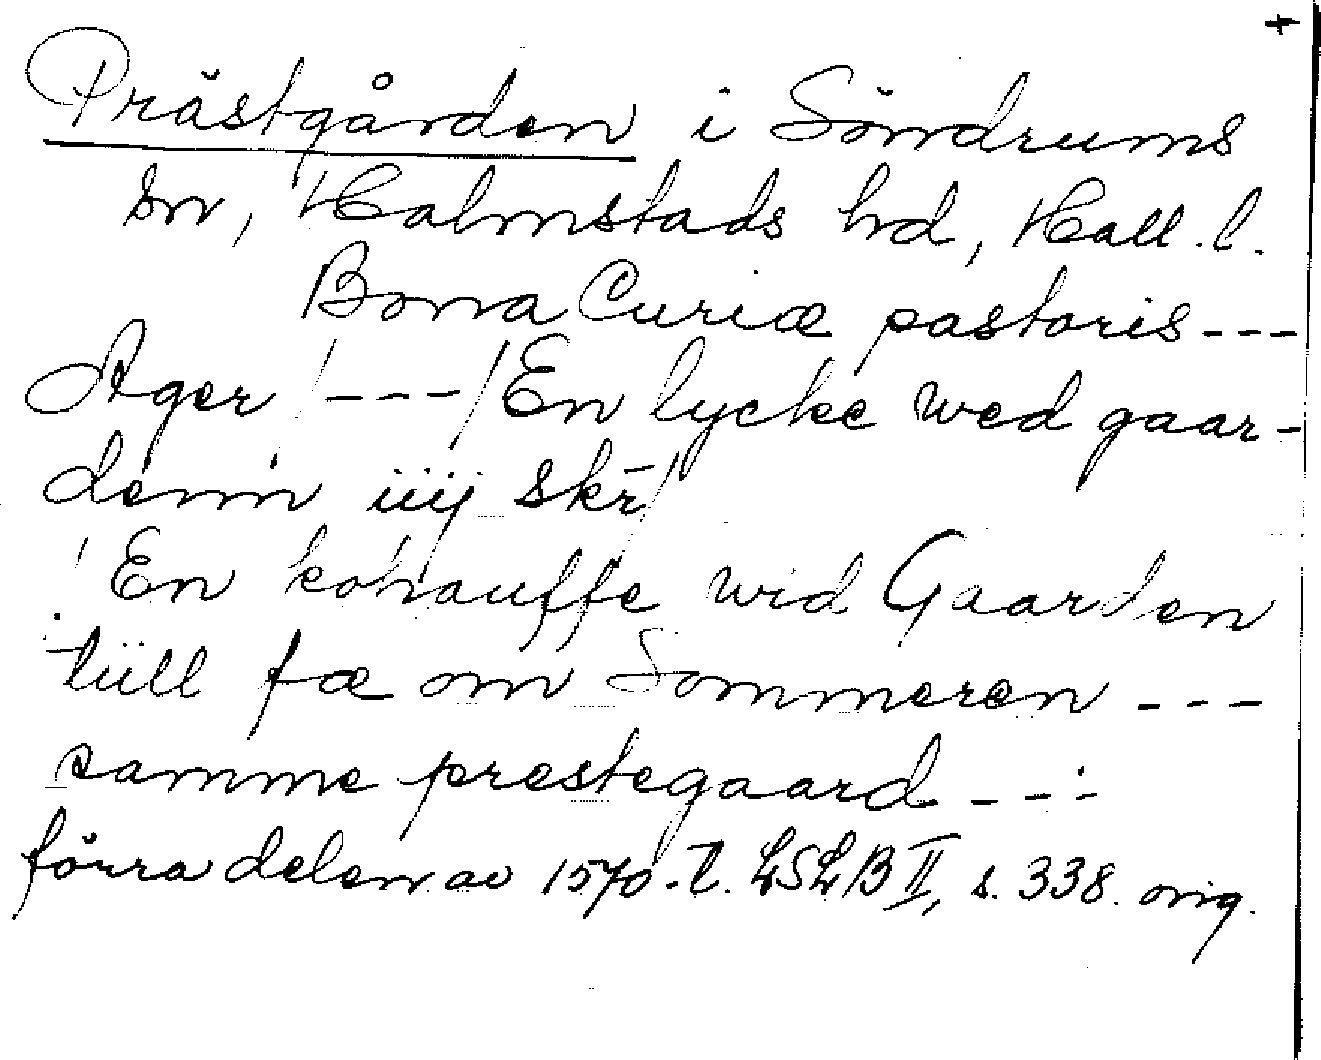 +
Prästgården i Söndrums
sn, Halmstads hd, Hall. l.
Bona Curiæ pastoris ---
Ager / --- / En lycke wed gaar-
denn iiij skr̄ /
/ En kohauffe wid Gaarden
tiill fæ om Sommeren ---
samme prestegaard ---
förra delen av 1570-t. LSLB II, s. 338. orig.